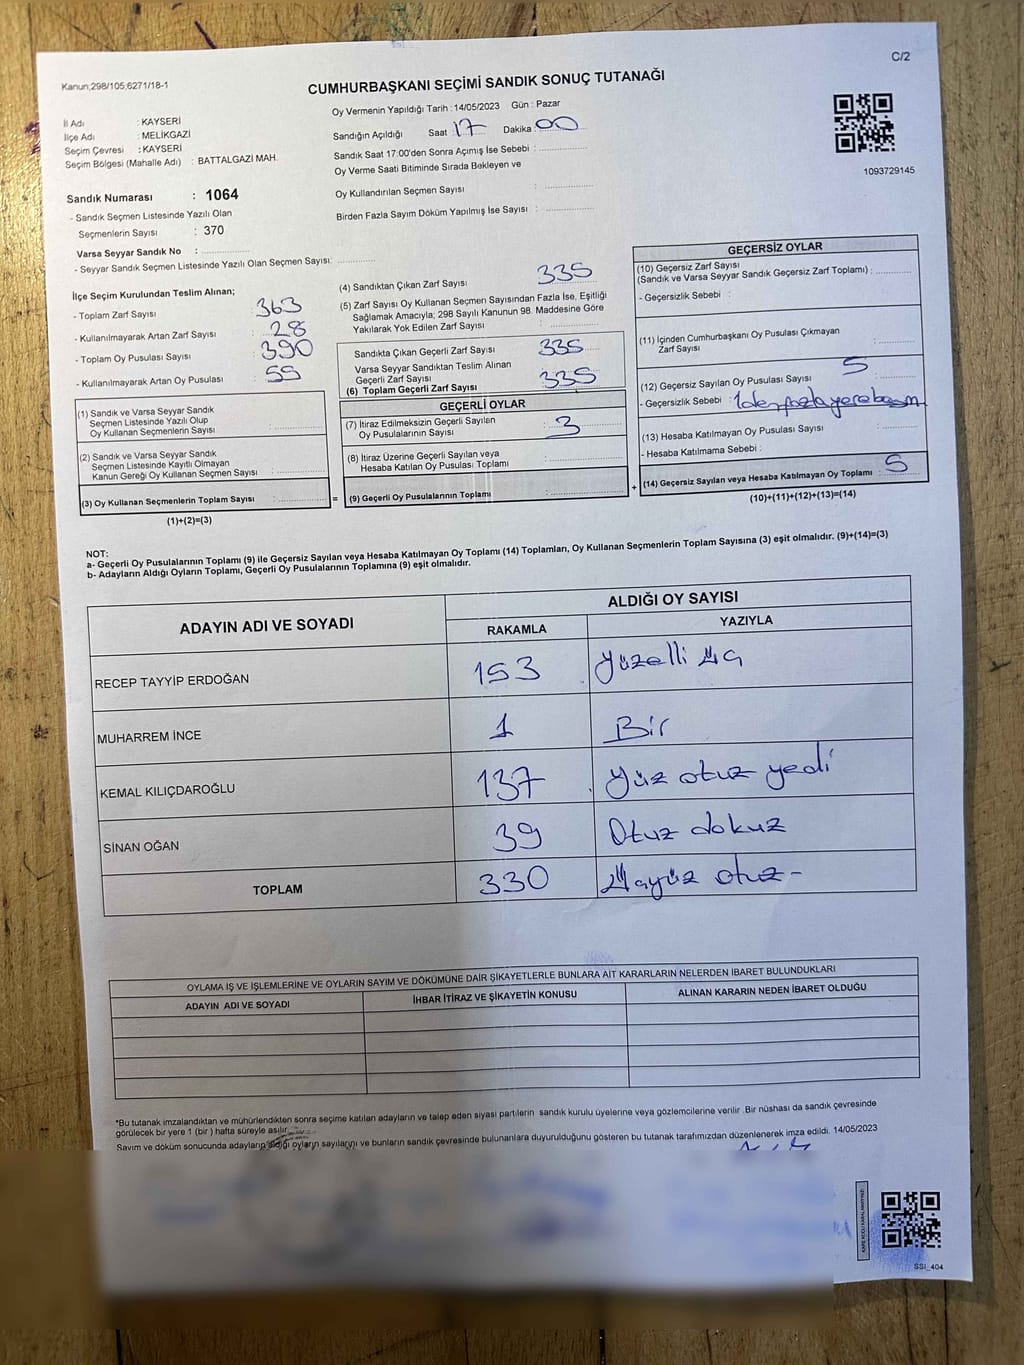 C/2
Kanun;298/105;6271/18-1
CUMHURBAŞKANI SEÇİMİ SANDIK SONUÇ TUTANAĞI
Oy Vermenin Yapıldığı Tarih : 14/05/2023 Gün : Pazar
İl Adı : KAYSERİ
İlçe Adı : MELİKGAZİ
Seçim Çevresi : KAYSERİ
Seçim Bölgesi (Mahalle Adı) : BATTALGAZİ MAH.
Sandığın Açıldığı Saat : 17 Dakika : 00
Sandık Saat 17:00'den Sonra Açımış İse Sebebi :
Oy Verme Saati Bitiminde Sırada Bekleyen ve
Oy Kullandırılan Seçmen Sayısı :
Birden Fazla Sayım Döküm Yapılmış İse Sayısı :
1093729145
Sandık Numarası : 1064
- Sandık Seçmen Listesinde Yazılı Olan
Seçmenlerin Sayısı : 370
Varsa Seyyar Sandık No :
- Seyyar Sandık Seçmen Listesinde Yazılı Olan Seçmen Sayısı:
İlçe Seçim Kurulundan Teslim Alınan;
- Toplam Zarf Sayısı : 363
- Kullanılmayarak Artan Zarf Sayısı : 28
- Toplam Oy Pusulası Sayısı : 390
- Kullanılmayarak Artan Oy Pusulası : 55
(1) Sandık ve Varsa Seyyar Sandık
Seçmen Listesinde Yazılı Olup
Oy Kullanan Seçmenlerin Sayısı :
(2) Sandık ve Varsa Seyyar Sandık
Seçmen Listesinde Kayıtlı Olmayan
Kanun Gereği Oy Kullanan Seçmen Sayısı :
(3) Oy Kullanan Seçmenlerin Toplam Sayısı : =
(1)+(2)=(3)
(4) Sandıktan Çıkan Zarf Sayısı : 335
(5) Zarf Sayısı Oy Kullanan Seçmen Sayısından Fazla İse, Eşitliği
Sağlamak Amacıyla; 298 Sayılı Kanunun 98. Maddesine Göre
Yakılarak Yok Edilen Zarf Sayısı :
Sandıkta Çıkan Geçerli Zarf Sayısı : 335
Varsa Seyyar Sandıktan Teslim Alınan
Geçerli Zarf Sayısı :
(6) Toplam Geçerli Zarf Sayısı : 335
GEÇERLİ OYLAR
(7) İtiraz Edilmeksizin Geçerli Sayılan
Oy Pusulalarının Sayısı : 3
(8) İtiraz Üzerine Geçerli Sayılan veya
Hesaba Katılan Oy Pusulası Toplamı :
(9) Geçerli Oy Pusulalarının Toplamı : +
GEÇERSİZ OYLAR
(10) Geçersiz Zarf Sayısı
(Sandık ve Varsa Seyyar Sandık Geçersiz Zarf Toplamı) :
- Geçersizlik Sebebi :
(11) İçinden Cumhurbaşkanı Oy Pusulası Çıkmayan
Zarf Sayısı :
(12) Geçersiz Sayılan Oy Pusulası Sayısı : 5
- Geçersizlik Sebebi : 1 den fazla yere basım
(13) Hesaba Katılmayan Oy Pusulası Sayısı :
- Hesaba Katılmama Sebebi :
(14) Geçersiz Sayılan veya Hesaba Katılmayan Oy Toplamı : 5
(10)+(11)+(12)+(13)=(14)
NOT:
a- Geçerli Oy Pusulalarının Toplamı (9) ile Geçersiz Sayılan veya Hesaba Katılmayan Oy Toplamı (14) Toplamları, Oy Kullanan Seçmenlerin Toplam Sayısına (3) eşit olmalıdır. (9)+(14)=(3)
b- Adayların Aldığı Oyların Toplamı, Geçerli Oy Pusulalarının Toplamına (9) eşit olmalıdır.
ADAYIN ADI VE SOYADI ALDIĞI OY SAYISI
RAKAMLA YAZIYLA
RECEP TAYYİP ERDOĞAN 153 Yüzelli üç
MUHARREM İNCE 1 Bir
KEMAL KILIÇDAROĞLU 137 Yüz otuz yedi
SİNAN OĞAN 39 Otuz dokuz
TOPLAM 330 Üçyüz otuz-
OYLAMA İŞ VE İŞLEMLERİNE VE OYLARIN SAYIM VE DÖKÜMÜNE DAİR ŞİKAYETLERLE BUNLARA AİT KARARLARIN NELERDEN İBARET BULUNDUKLARI
ADAYIN ADI VE SOYADI İHBAR İTİRAZ VE ŞİKAYETİN KONUSU ALINAN KARARIN NEDEN İBARET OLDUĞU
*Bu tutanak imzalandıktan ve mühürlendikten sonra seçime katılan adayların ve talep eden siyasi partilerin sandık kurulu üyelerine veya gözlemcilerine verilir .Bir nüshası da sandık çevresinde
görülecek bir yere 1 (bir ) hafta süreyle asılır.
Sayım ve döküm sonucunda adayların aldığı oyların sayılarını ve bunların sandık çevresinde bulunanlara duyurulduğunu gösteren bu tutanak tarafımızdan düzenlenerek imza edildi. 14/05/2023
SSI_404